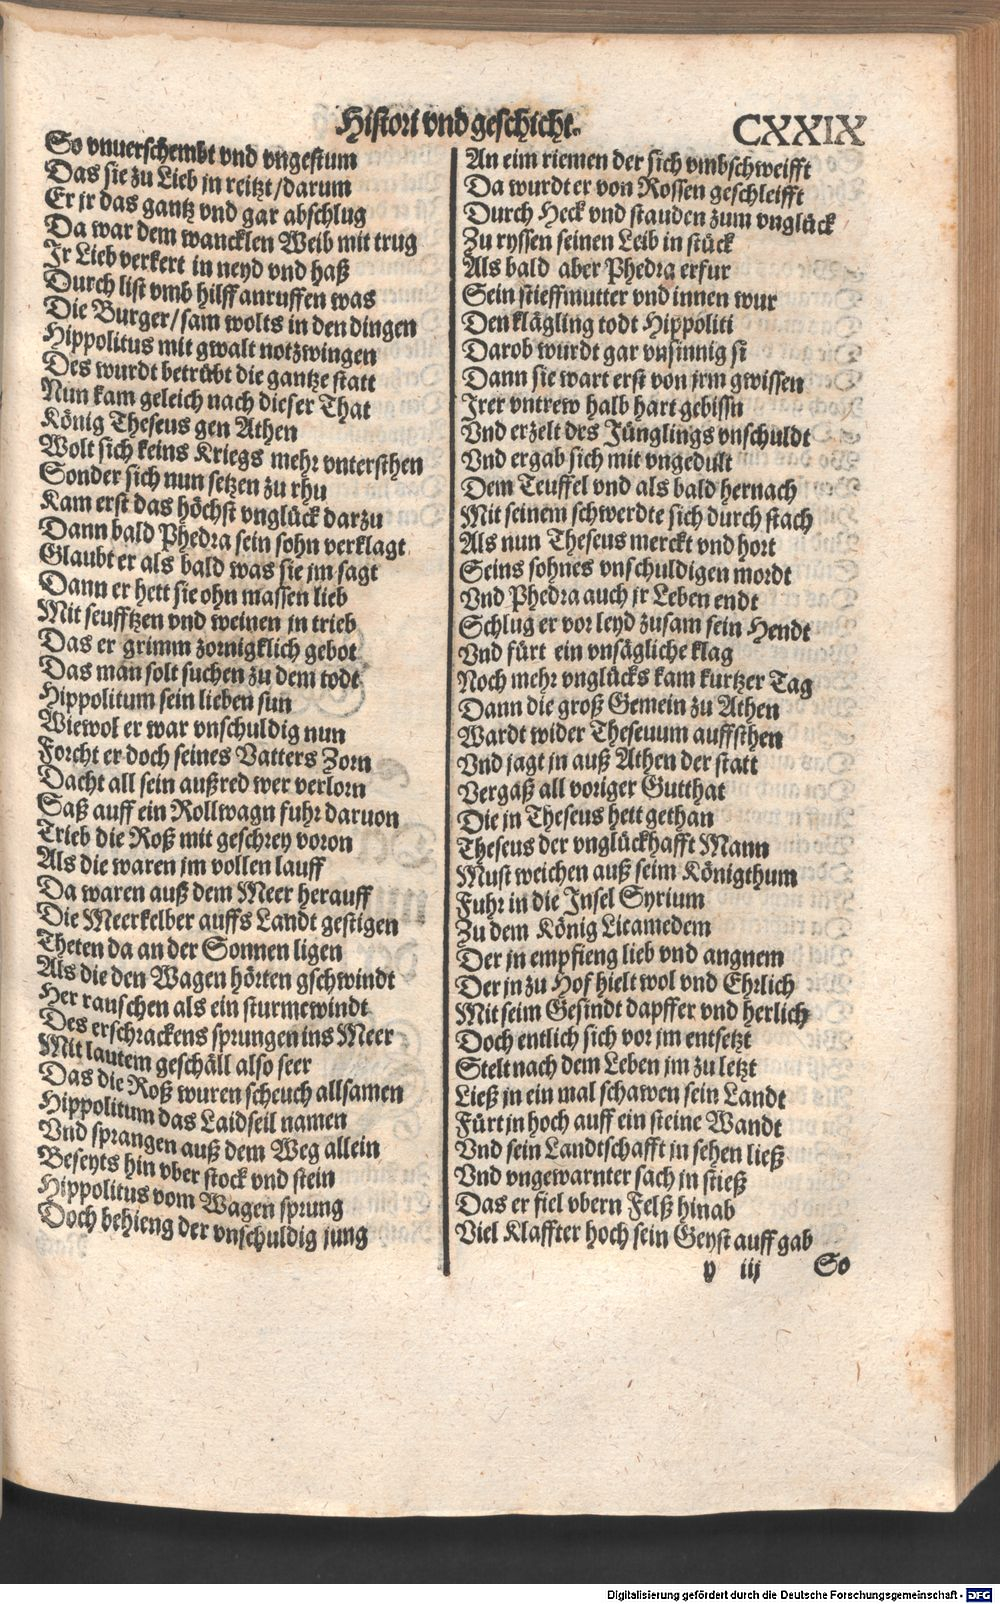 Histori vnd geschicht.
CXXIX
So vnuerschembt vnd vngestum
Das sie zu Lieb jn reitzt/darum
Er jr das gantz vnd gar abschlug
Da war dem wancklen Weib mit trug
Jr Lieb verkert in neyd vnd haß
Durch list vmb hilff anruffen was
Die Burger/sam wolts in den dingen
Hippolitus mit gwalt notzwingen
Des wurdt betrübt die gantze statt
Nun kam geleich nach dieser That
König Theseus gen Athen
Wolt sich keins Kriegs mehr vntersthen
Sonder sich nun setzen zu rhu
Kam erst das höchst vnglück darzu
Dann bald Phedra sein sohn verklagt
Glaubt er als bald was sie jm sagt
Dann er hett sie ohn massen lieb
Mit seufftzen vnd weinen jn trieb
Das er grimm zornigklich gebot
Das man solt suchen zu dem todt
Hippolitum sein lieben sun
Wiewol er war vnschuldig nun
Forcht er doch seines Vatters Zorn
Dacht all sein außred wer verlorn
Saß auff ein Rollwagn fuhr daruon
Trieb die Roß mit geschrey voron
Als die waren jm vollen lauff
Da waren auß dem Meer herauff
Die Meerkelber auffs Landt gestigen
Theten da an der Sonnen ligen
Als die den Wagen hörten gschwindt
Her rauschen als ein sturmewindt
Des erschrackens sprungen ins Meer
Mit lautem geschäll also seer
Das die Roß wuren scheuch allsamen
Hippolitum das Laidseil namen
Vnd sprangen auß dem Weg allein
Beseyts hin vber stock vnd stein
Hippolitus vom Wagen sprung
Doch behieng der vnschuldig jung
An eim riemen der sich vmbschweifft
Da wurdt er von Rossen geschleifft
Durch Heck vnd stauden zum vnglück
Zu ryssen seinen Leib in stück
Als bald aber Phedra erfur
Sein stieffmutter vnd innen wur
Den klägling todt Hippoliti
Darob wurdt gar vnsinnig si
Dann sie wart erst von jrm gwissen
Jrer vntrew halb hart gebissn
Vnd erzelt des Jünglings vnschuldt
Vnd ergab sich mit vngedult
Dem Teuffel vnd als bald hernach
Mit seinem schwerdte sich durch stach
Als nun Theseus merckt vnd hort
Seins sohnes vnschuldigen mordt
Vnd Phedra auch jr Leben endt
Schlug er vor leyd zusam sein Hendt
Vnd fürt ein vnsägliche klag
Noch mehr vnglücks kam kurtzer Tag
Dann die groß Gemein zu Athen
Wardt wider Theseuum auffsthen
Vnd jagt jn auß Athen der statt
Vergäß all voriger Gutthat
Die jn Theseus hett gethan
Theseus der vnglückhafft Mann
Must weichen auß seim Königthum
Fuhr in die Insel Syrium
Zu dem König Licamedem
Der jn empfieng lieb vnd angnem
Der jn zu Hof hielt wol vnd Ehrlich
Mit seim Gesindt dapffer vnd herlich
Doch entlich sich vor jm entsetzt
Stelt nach dem Leben jm zu letzt
Ließ jn ein mal schawen sein Landt
Fürt jn hoch auff ein steine Wandt
Vnd sein Landtschafft jn sehen ließ
Vnd vngewarnter sach jn stieß
Das er fiel vbern Felß hinab
Viel Klaffter hoch sein Geyst auff gab
y iij So
Digitalisierung gefördert durch die Deutsche Forschungsgemeinschaft - DFG